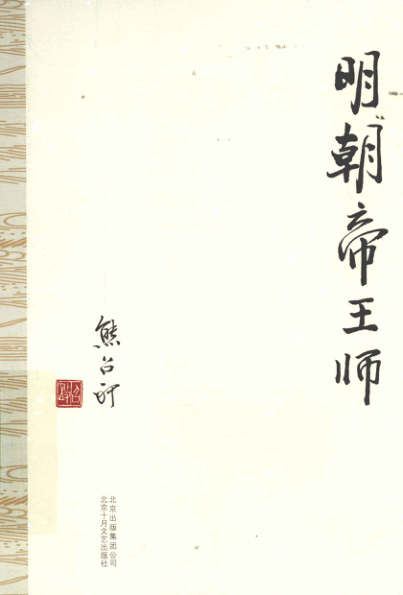 明朝帝王师
熊召政
北京出版集团公司
北京十月文艺出版社